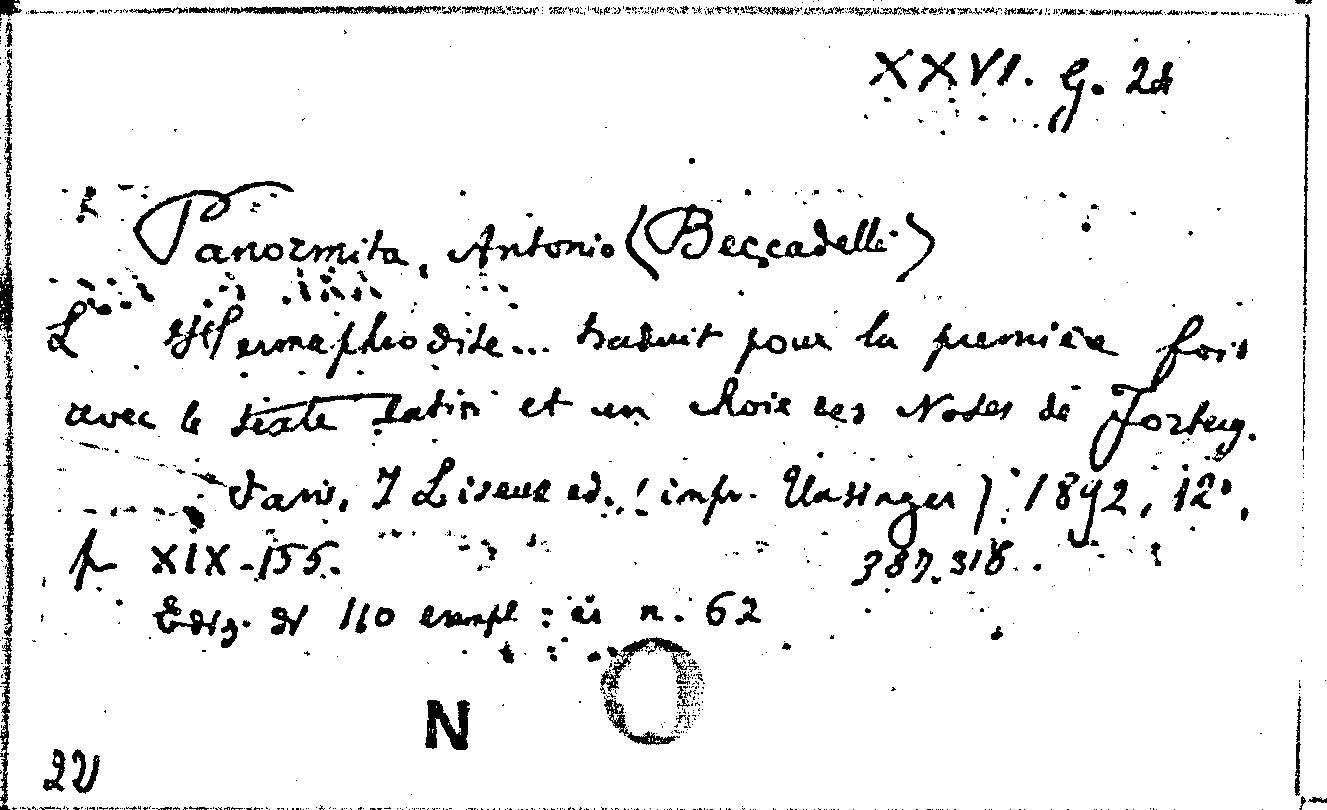 XXVI. G. 28
Panormita, Antonio (Beccadelli)
L'Hermaphrodite... traduit pour la première fois
avec le texte latin et un choix des Notes de Forberg.
Paris, I Liseux ed. (impr. Unsinger) 1892, 12°,
p XIX-155. 387.318.
Ediz. di 110 exempl: è il n. 62
N
2V